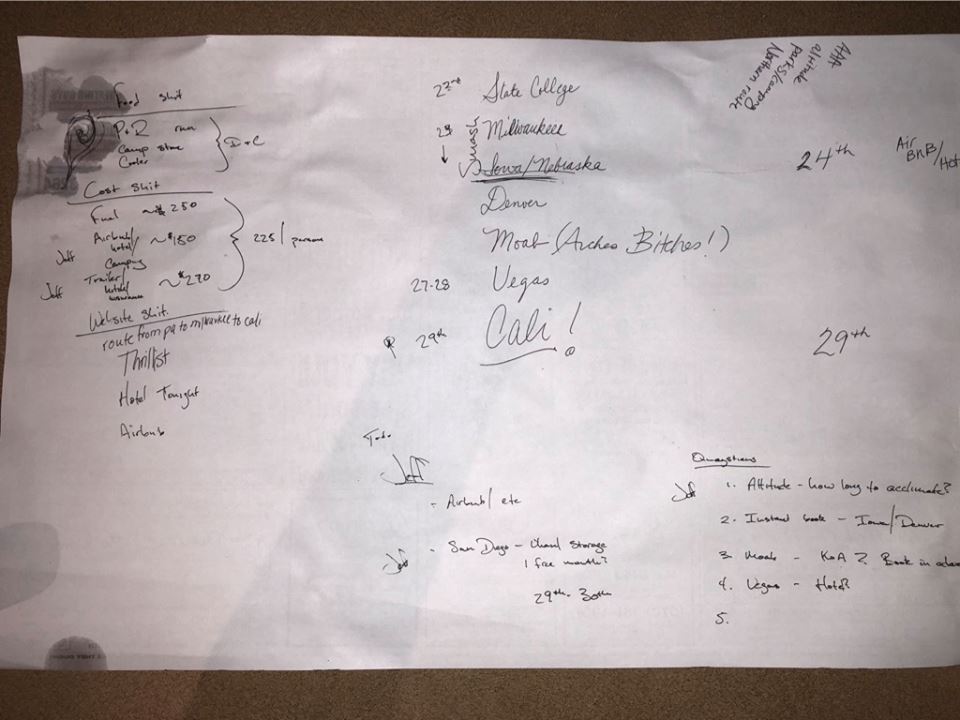 Food shit
P+R run
Camp stove
Cooler
D+C
Cost shit
Fuel ~$250
Airbnb/
hotel/
Camping
~$150
Jeff
Trailer/
hitch/
insurance
~$270
Jeff
225/person
Website shit.
route from pa to milwaukee to cali
Thrillist
Hotel Tonight
Airbnb
22nd State College
24 Milwaukee
Iowa/Nebraska
Denver
Moab (Arches Bitches!)
27-28 Vegas
29th Cali!
AAA
altitude
parks/camping
Northern route
24th
Air
BnB/
Hot
29th
Todo
Jeff
- Airbnb/etc
Jeff
- San Diego - Uhaul Storage
1 free month?
29th-30th
Quaystions
Jeff
1. Altitude - how long to acclimate?
2. Instant book - Iowa/Denver
3. Moab - KOA? Book in adva
4. Vegas - Hotel?
5.